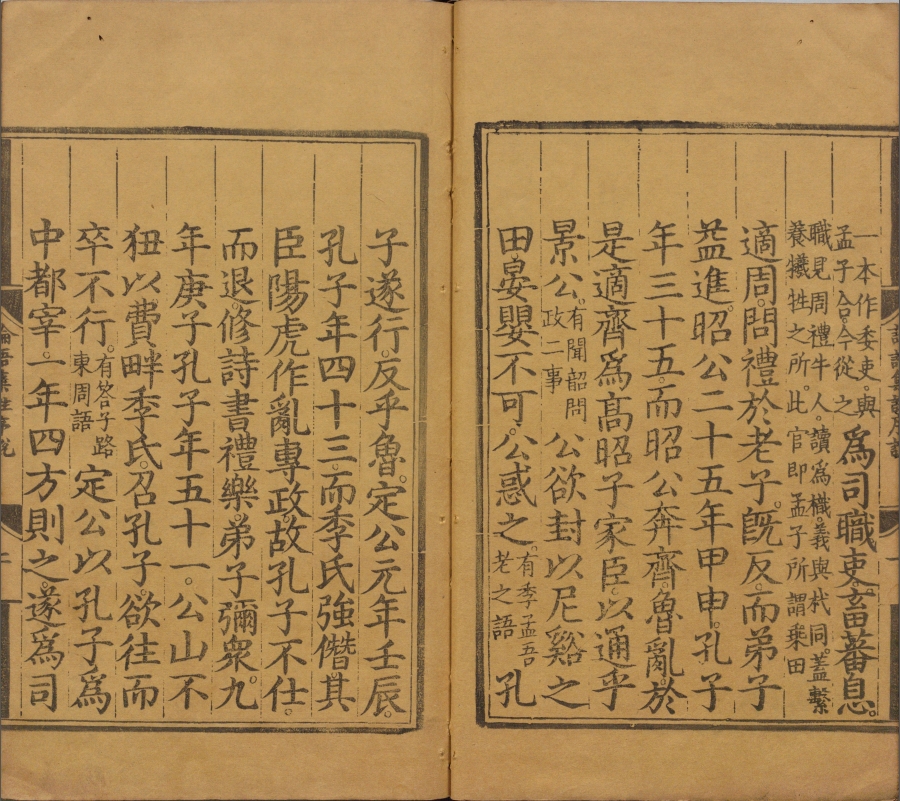 一本作委吏。與
孟子合。今從之。
爲司職吏。畜蕃息。
職見周禮牛人。讀爲樴。義與杙同。蓋繫
養犧牲之所。此官即孟子所謂乘田
適周。問禮於老子。旣反。而弟子
益進。昭公二十五年甲申。孔子
年三十五。而昭公奔齊。魯亂。於
是適齊。爲高昭子家臣。以通乎
景公。
有聞韶問
政二事
公欲封以尼谿之
田。晏嬰不可。公惑之。
有季孟吾
老之語
孔
子遂行。反乎魯。定公元年壬辰。
孔子年四十三。而季氏強僭。其
臣陽虎作亂專政。故孔子不仕。
而退。修詩書禮樂。弟子彌衆。九
年庚子。孔子年五十一。公山不
狃以費畔季氏。召孔子。欲往。而
卒不行。
有答子路
東周語
定公以孔子爲
中都宰。一年。四方則之。遂爲司
論語集註序說